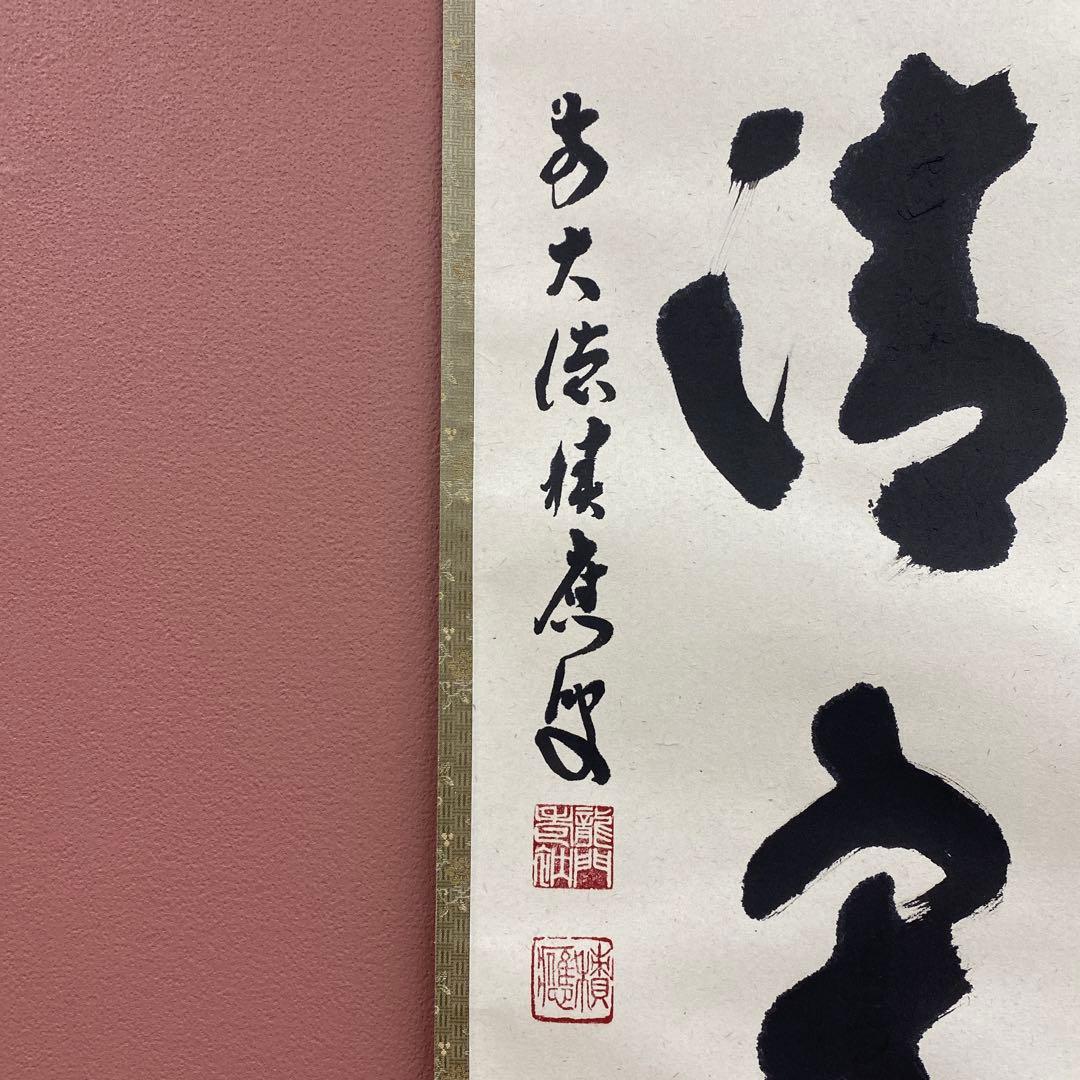 清
前大徳積應叟
龍門
積應